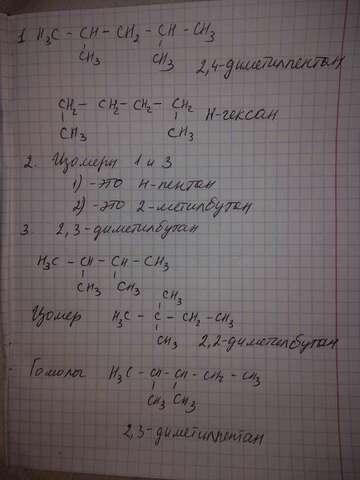 1. H₃C - CH - CH₂ - CH - CH₃
CH₃ CH₃
2,4-диметилпентан
CH₂ - CH₂ - CH₂ - CH₂
CH₃ CH₃
Н-гексан
2. Изомеры 1 и 3
1) -это н-пентан
2) -это 2-метилбутан
3. 2,3-диметилбутан
H₃C - CH - CH - CH₃
CH₃ CH₃
CH₃
Изомер H₃C - C - CH₂ - CH₃
CH₃
2,2-диметилбутан
Гомолог H₃C - CH - CH - CH₂ - CH₃
CH₃ CH₃
2,3-диметилпентан